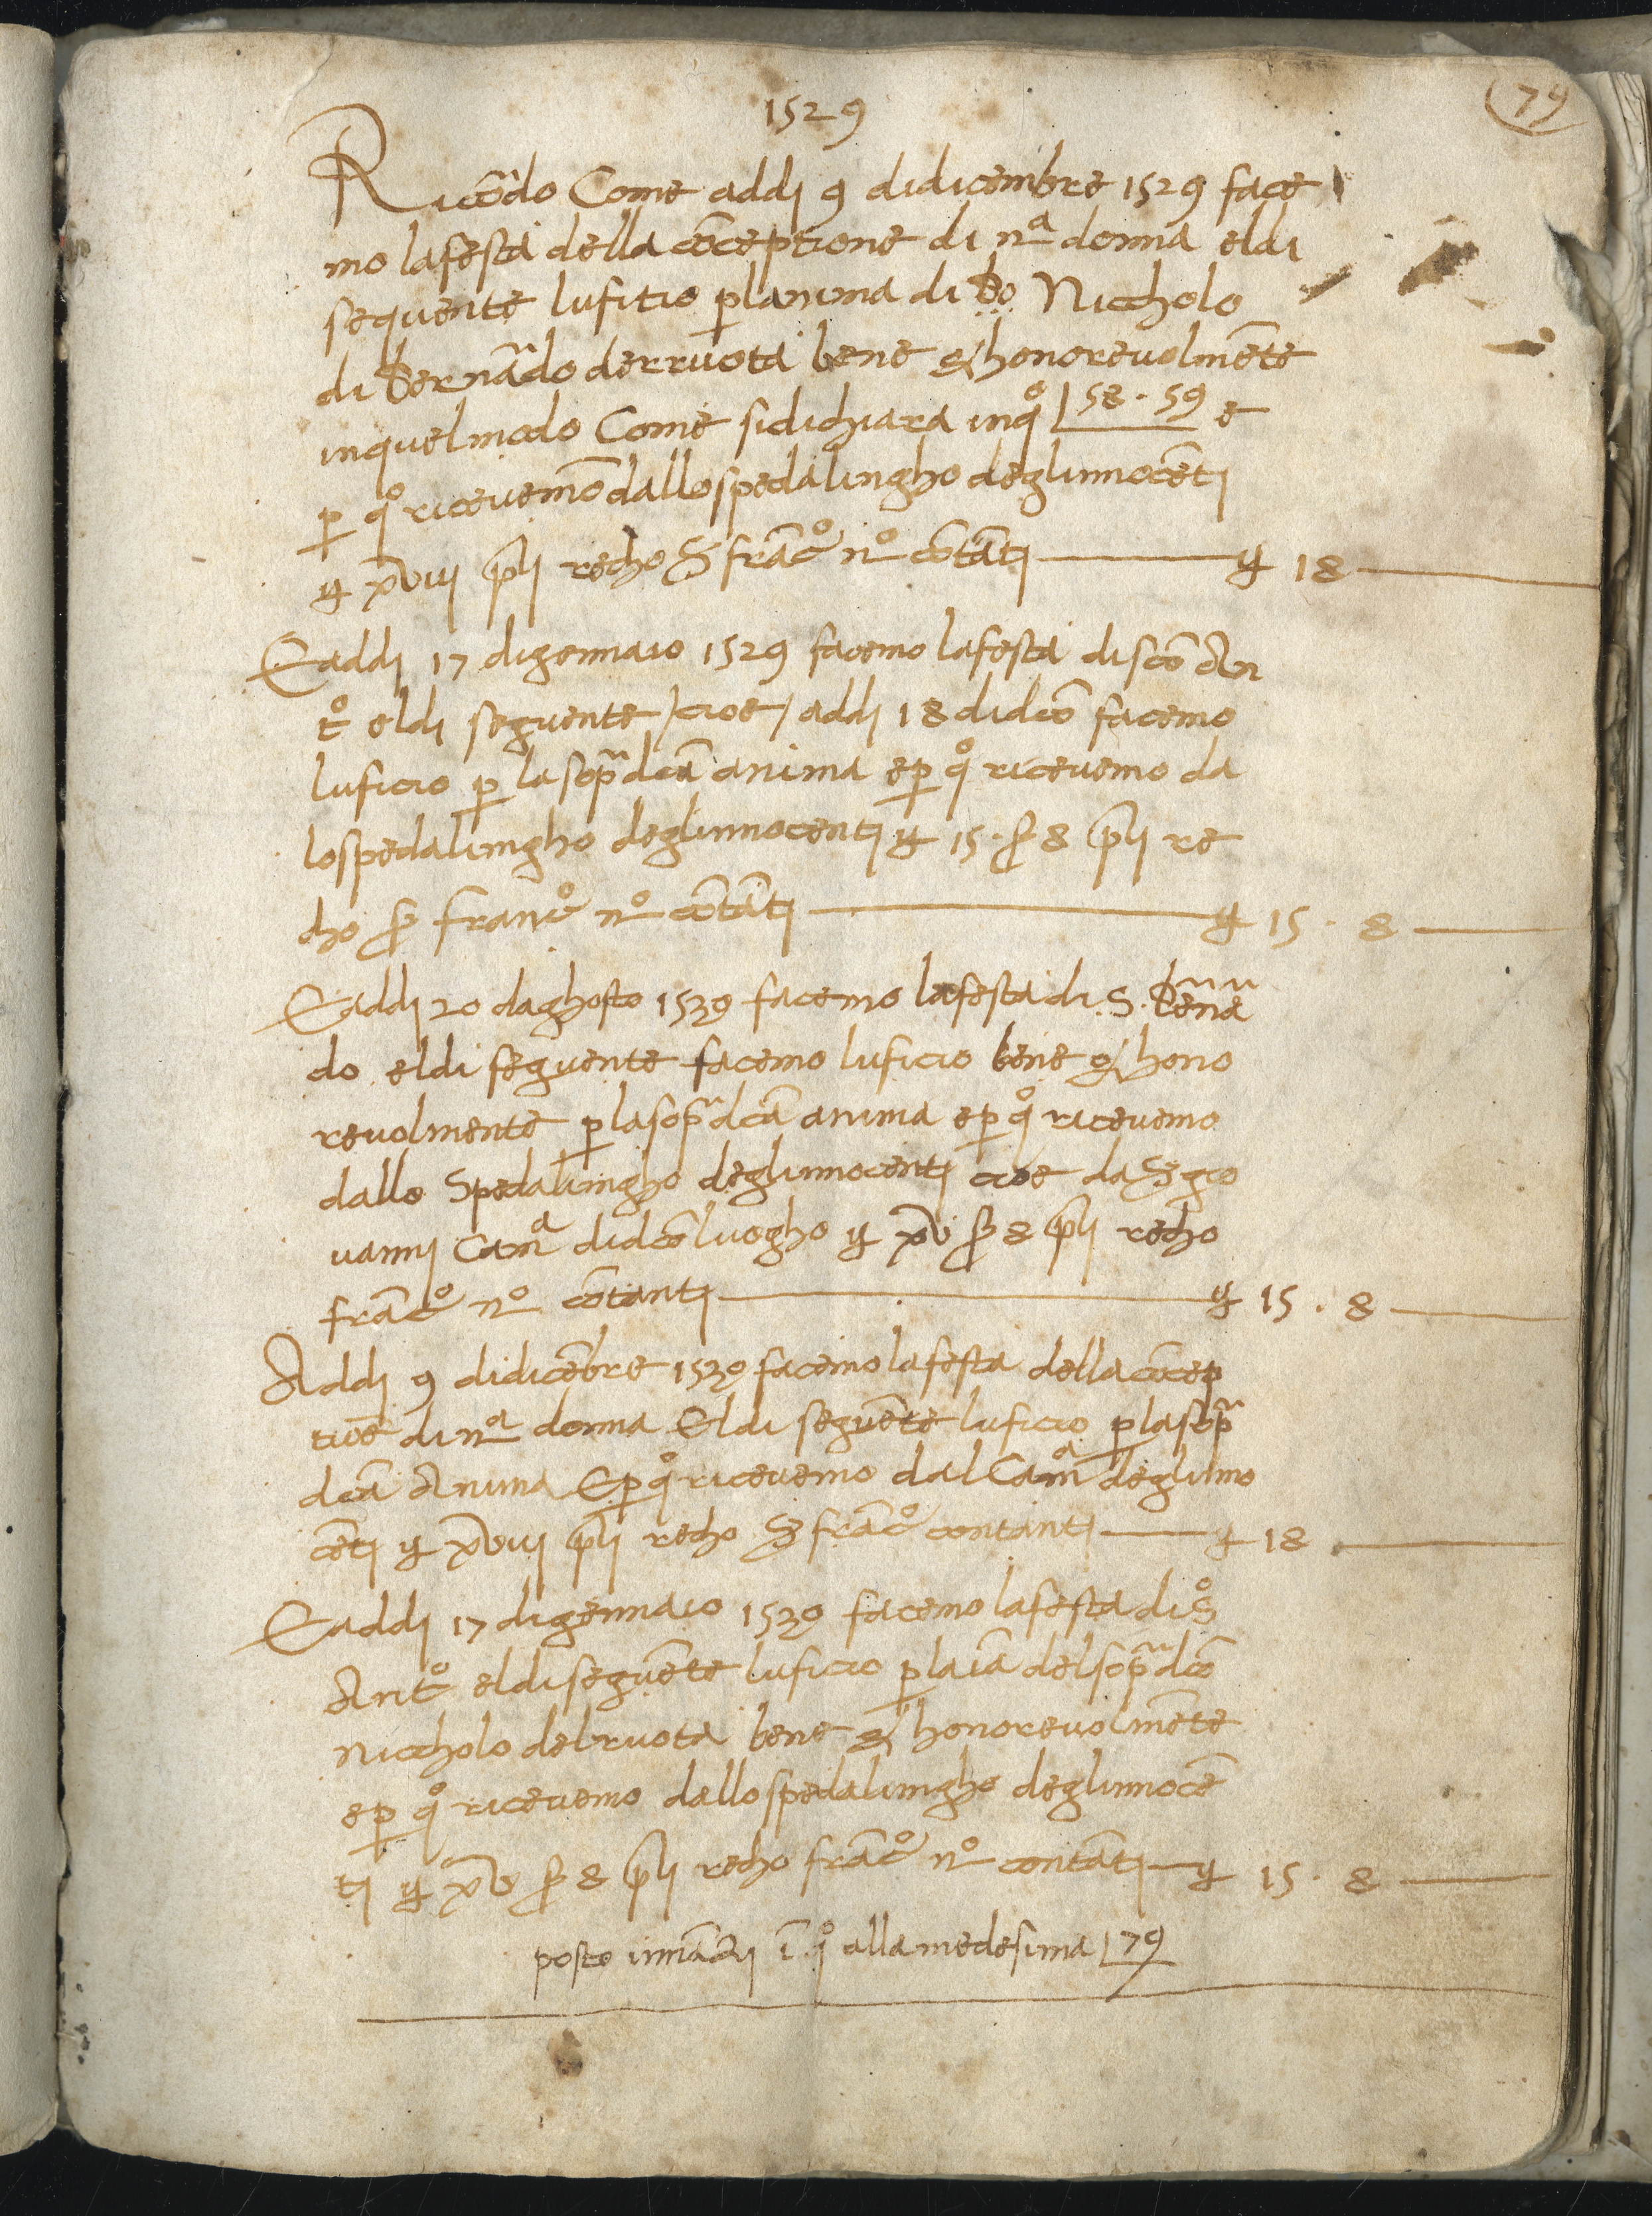 1529
79
Ricōrdo Come addj 9 didicembre 1529 face
mo lafesta della cōceptione di nª donna eldi
sequente lufitio planima di Bo Niccholo
di Bernādo derruota bene & honorevolmēte
inquelmodo Come sidichiara inqº 58 · 59 e
p qº ricevemō dallospedalingho deglinnocētj
 xviii pli recho S frācº nº cōtātj —— 18 ——
Eaddj 17 digennaio 1529 facemo lafesta discō An
tº eldj seguente / cioe / addj 18 didcō facemo
luficio p lasopª dcā anima ep qº ricevemo da
lospedalingho deglinnocentj 15 · s 8 pli re
cho s francº nº cōtātj —— 15 · 8 ——
Eaddj 20 daghosto 1530 facemo lafesta di S. Bēnā
do eldi seguente facemo luficio bene & hono
revolmente plasopª dcā anima ep qº ricevemo
dallo Spedalingho deglinnocentj cioe da S gio
vannj Camª didcō luogho xv s 8 pli recho
frācº nº cōtantj —— 15 · 8 ——
Addj 9 didicēbre 1530 facemo lafesta della cōcep
tiōe di nª donna Eldi seguēte luficio plasopª
dcā Anima Ep qº ricevemo dal Camª deglinno
cētj xviii pli recho S frācº contantj —— 18 ——
Eaddj 17 digennaio 1530 facemo lafesta di Sº
Antº eldiseguēte luficio p laīa delsopª dcō
Niccholo delruota bene & honorevolmēte
ep qº ricevemo dallospedalingho deglinnocē
tj xv s 8 pli recho frācº nº contātj —— 15 · 8 ——
posto innāzj ī qº alla medesima 79